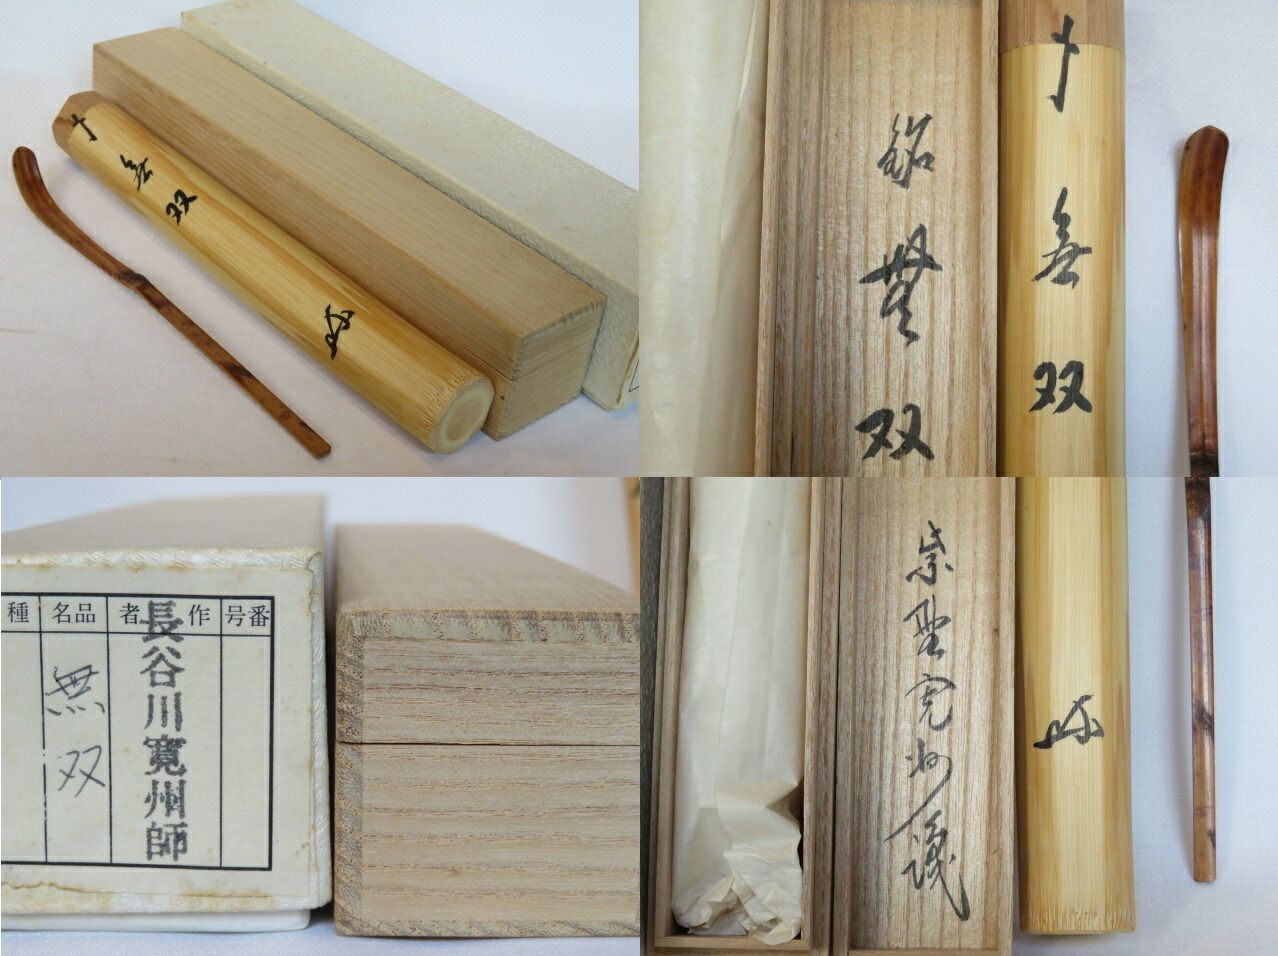 無
双
銘
無
双
無
双
種
名品
者 作
号番
無双
長谷川寛州師
紫野寛州識